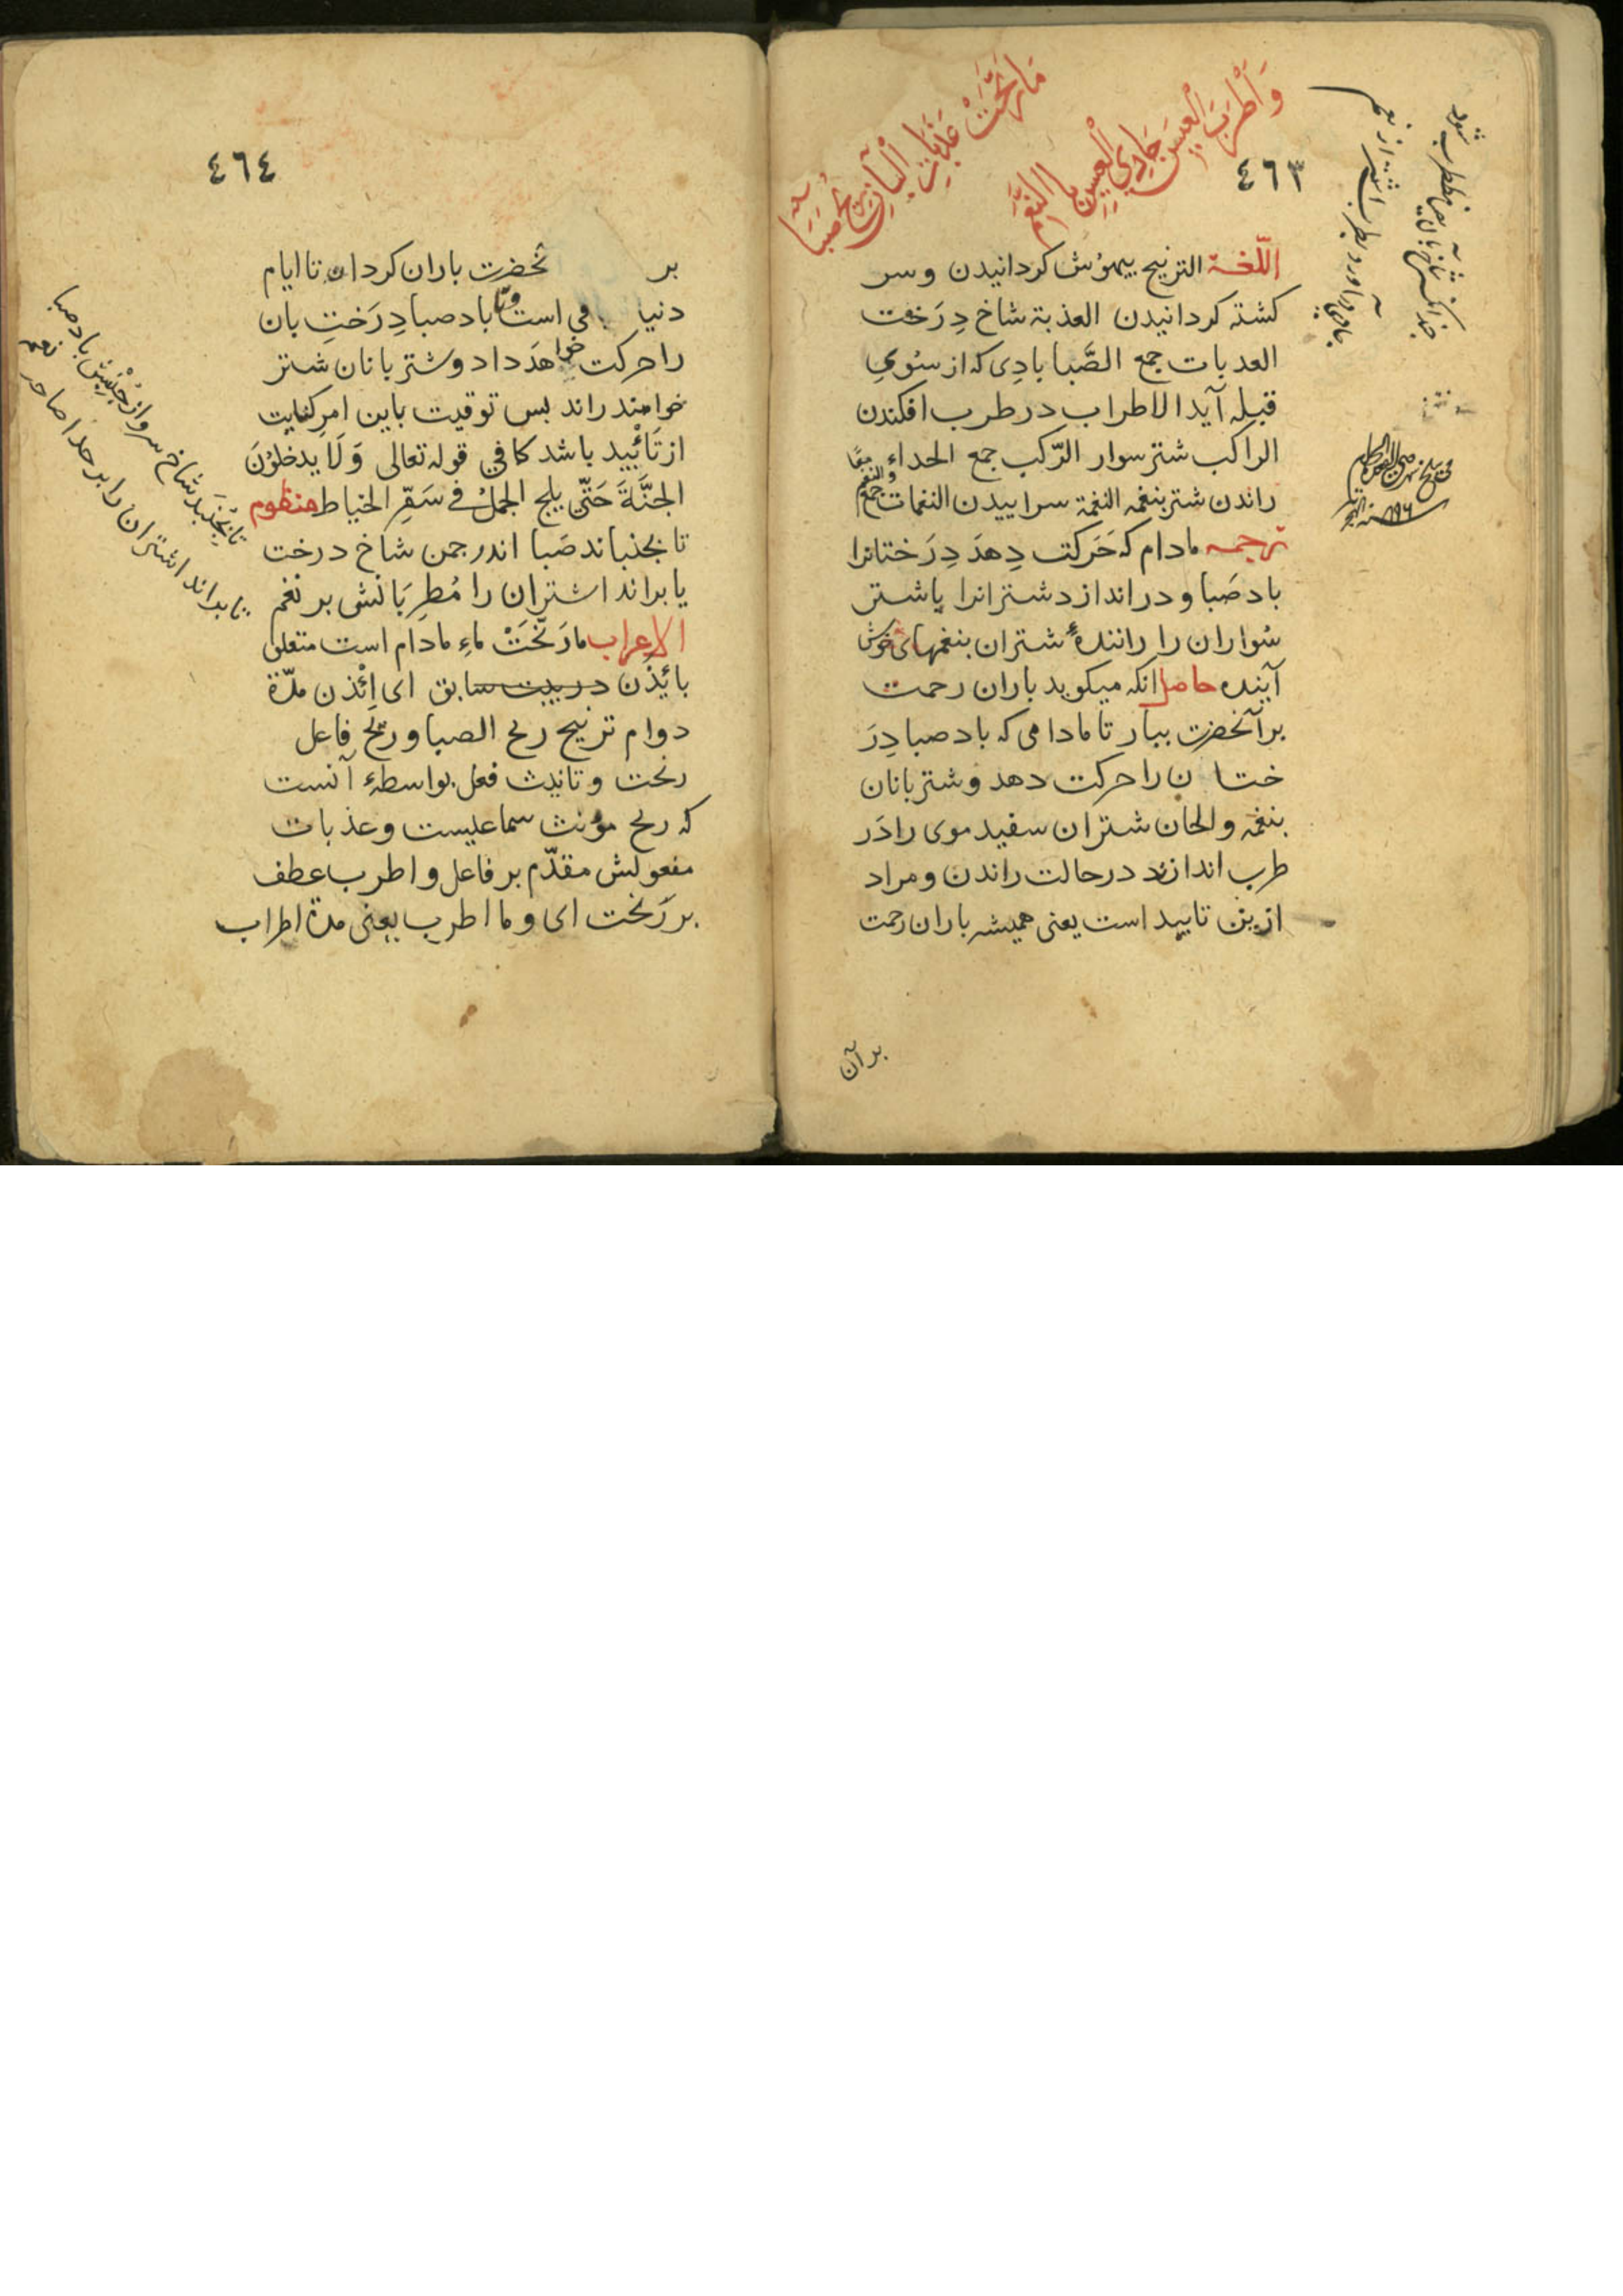 ٤٦٣
مَا رَنَّحَتْ عَذَبَاتِ الْبَانِ رِيحُ صَبَا
وَأَطْرَبَ الْعِيسَ حَادِي الْعِيسِ بِالنَّغَمِ
اللّغة الترنيح بيهوش كردانيدن وسر
كشته كردانيدن العذبة شاخ دِرَخت
العدبات جمع الصَّبا بادِى كه از سُوي
قبله آيد الاطراب در طرب افكندن
الراكب شتر سوار الرّكب جمع الحداء
راندن شتر بنغمه النغمة سراييدن النغمات جمع
والنغم معًا
ترجمه مادام كه حَركت دِهدَ دِرَختانرا
باد صَبا و در اندازد شترانرا يا شتر
سُواران را رانندهٔ شتران بنغمهاى خوش
آينده حاصل انكه ميكويد باران رحمت
بر آنحضرت ببار تا مادامى كه باد صبا دِرَ
ختان را حركت دهد وشتربانان
بنغمه والحان شتران سفيد موى را دَر
طرب اندازند در حالت راندن ومراد
ازين تاييد است يعنى هميشه باران رحمت
بر آن
٤٦٤
بر نحضرت باران كردان تا ايام
دنيا باقى است وتا باد صبا دِرَختِ بان
را حركت خواهَد داد وشتربانان شتر
خواهند راند بس توقيت باين امر كنايت
از تَائِيد باشد كما في قوله تعالى وَلَا يدخلوُنَ
الجنَّةَ حَتّى يلج الجملُ في سَمِّ الخياط منظوم
تا بجنباند صَبا اندر جمن شاخ درخت
يا براند اشتران را مُطرِبَانش بر نغم
الاعراب مارَنّحَتْ ماءِ مادام است متعلق
بائِذَن در بيت سابق اى اِئْذن مدّة
دوام ترنيح ريح الصبا وريح فاعل
رنحت وتانيث فعل بواسطهٔ آنست
كه ريح مؤنث سماعيست وعذبات
مفعولش مقدّم بر فاعل واطرب عطف
بر رَنحت اى وما اطرب يعنى مدة اطراب
تا بجنبد شاخ سرو از جنبش باد صبا
تا براند اشتران را بر حدا صاحب نغم